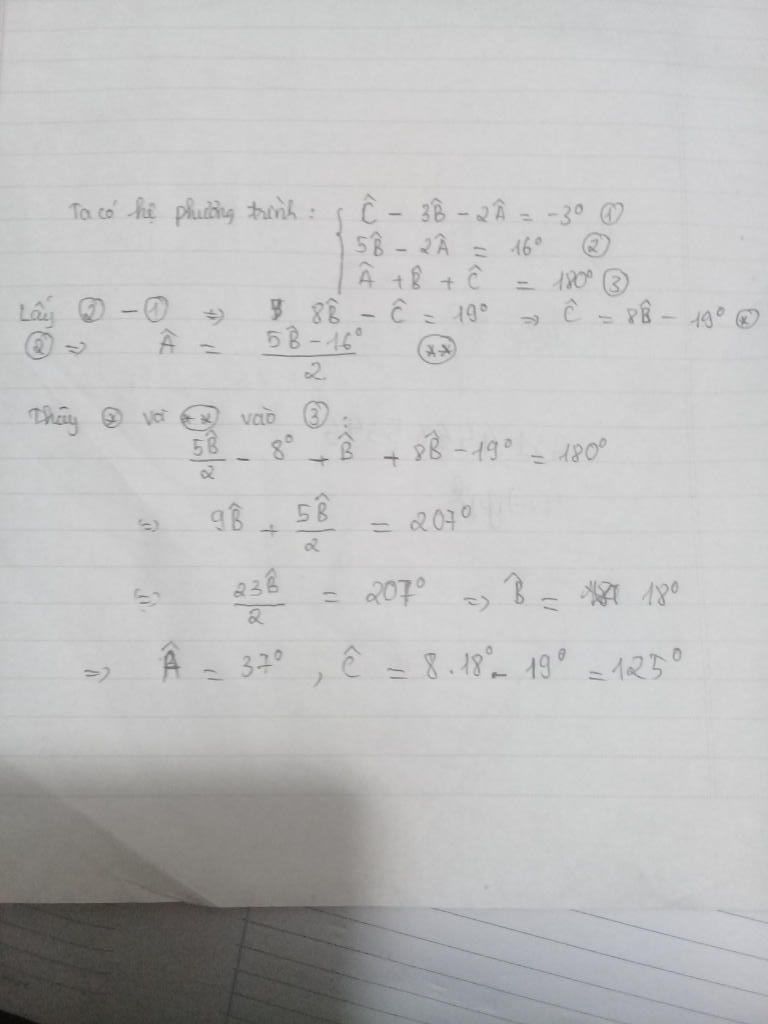 Ta có hệ phương trình: { Ĉ - 3B̂ - 2Â = -3° ①
5B̂ - 2Â = 16° ②
Â + B̂ + Ĉ = 180° ③
Lấy ② - ① => 8B̂ - Ĉ = 19° => Ĉ = 8B̂ - 19° (*)
② => Â = (5B̂ - 16°)/2 (**)
Thây (*) với (**) vào ③:
5B̂/2 - 8° + B̂ + 8B̂ - 19° = 180°
=> 9B̂ + 5B̂/2 = 207°
=> 23B̂/2 = 207° => B̂ = 18°
=> Â = 37°, Ĉ = 8.18° - 19° = 125°